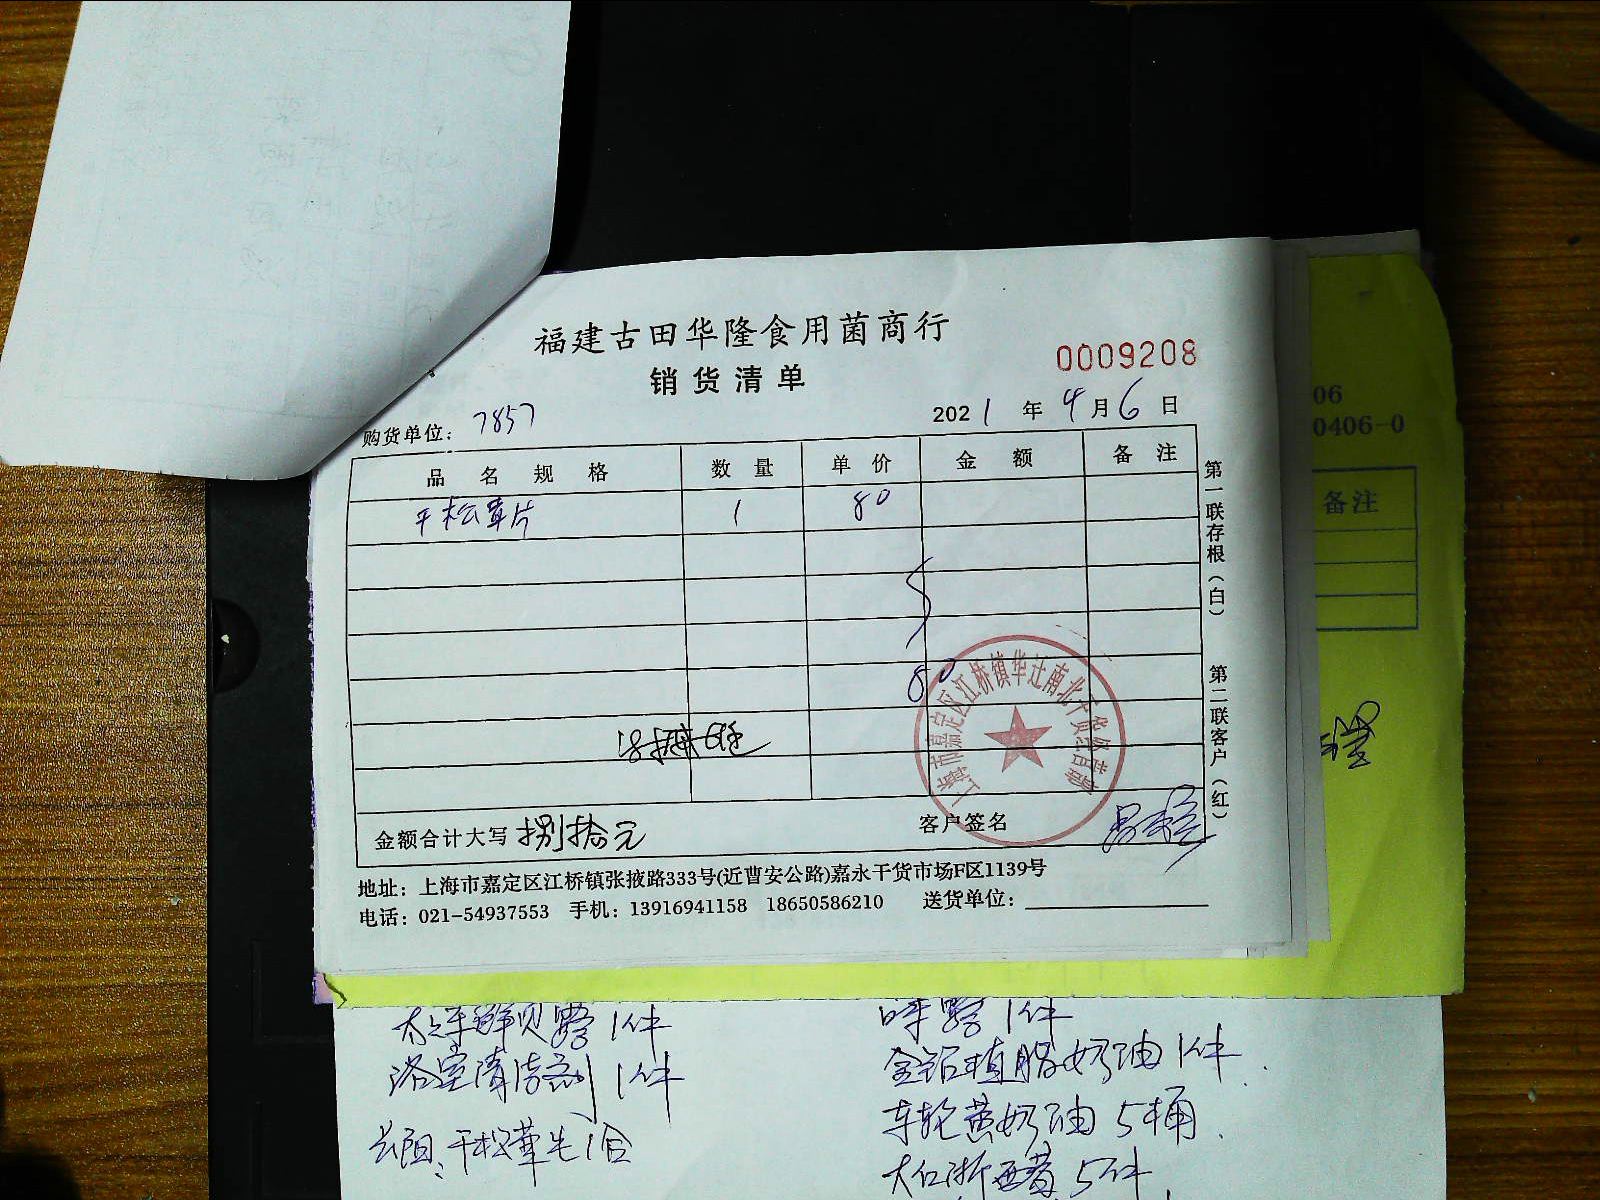 福建古田华隆食用菌商行
销货清单
0009208
购货单位：7857
2021年4月6日
品名规格 数量 单价 金额 备注
干松茸片 1 80
80
金额合计大写 捌拾元 客户签名
地址：上海市嘉定区江桥镇张掖路333号(近曹安公路)嘉永干货市场F区1139号
电话：021-54937553 手机：13916941158 18650586210 送货单位：
第一联存根(白)
第二联客户(红)
上海市嘉定区江桥镇华江南北干货
06
0406-0
备注
1件
浴室清洁剂 1件
干松茸 1合
1件
植脂奶油 1件
车轮黄奶油 5桶
大红浙醋 5件